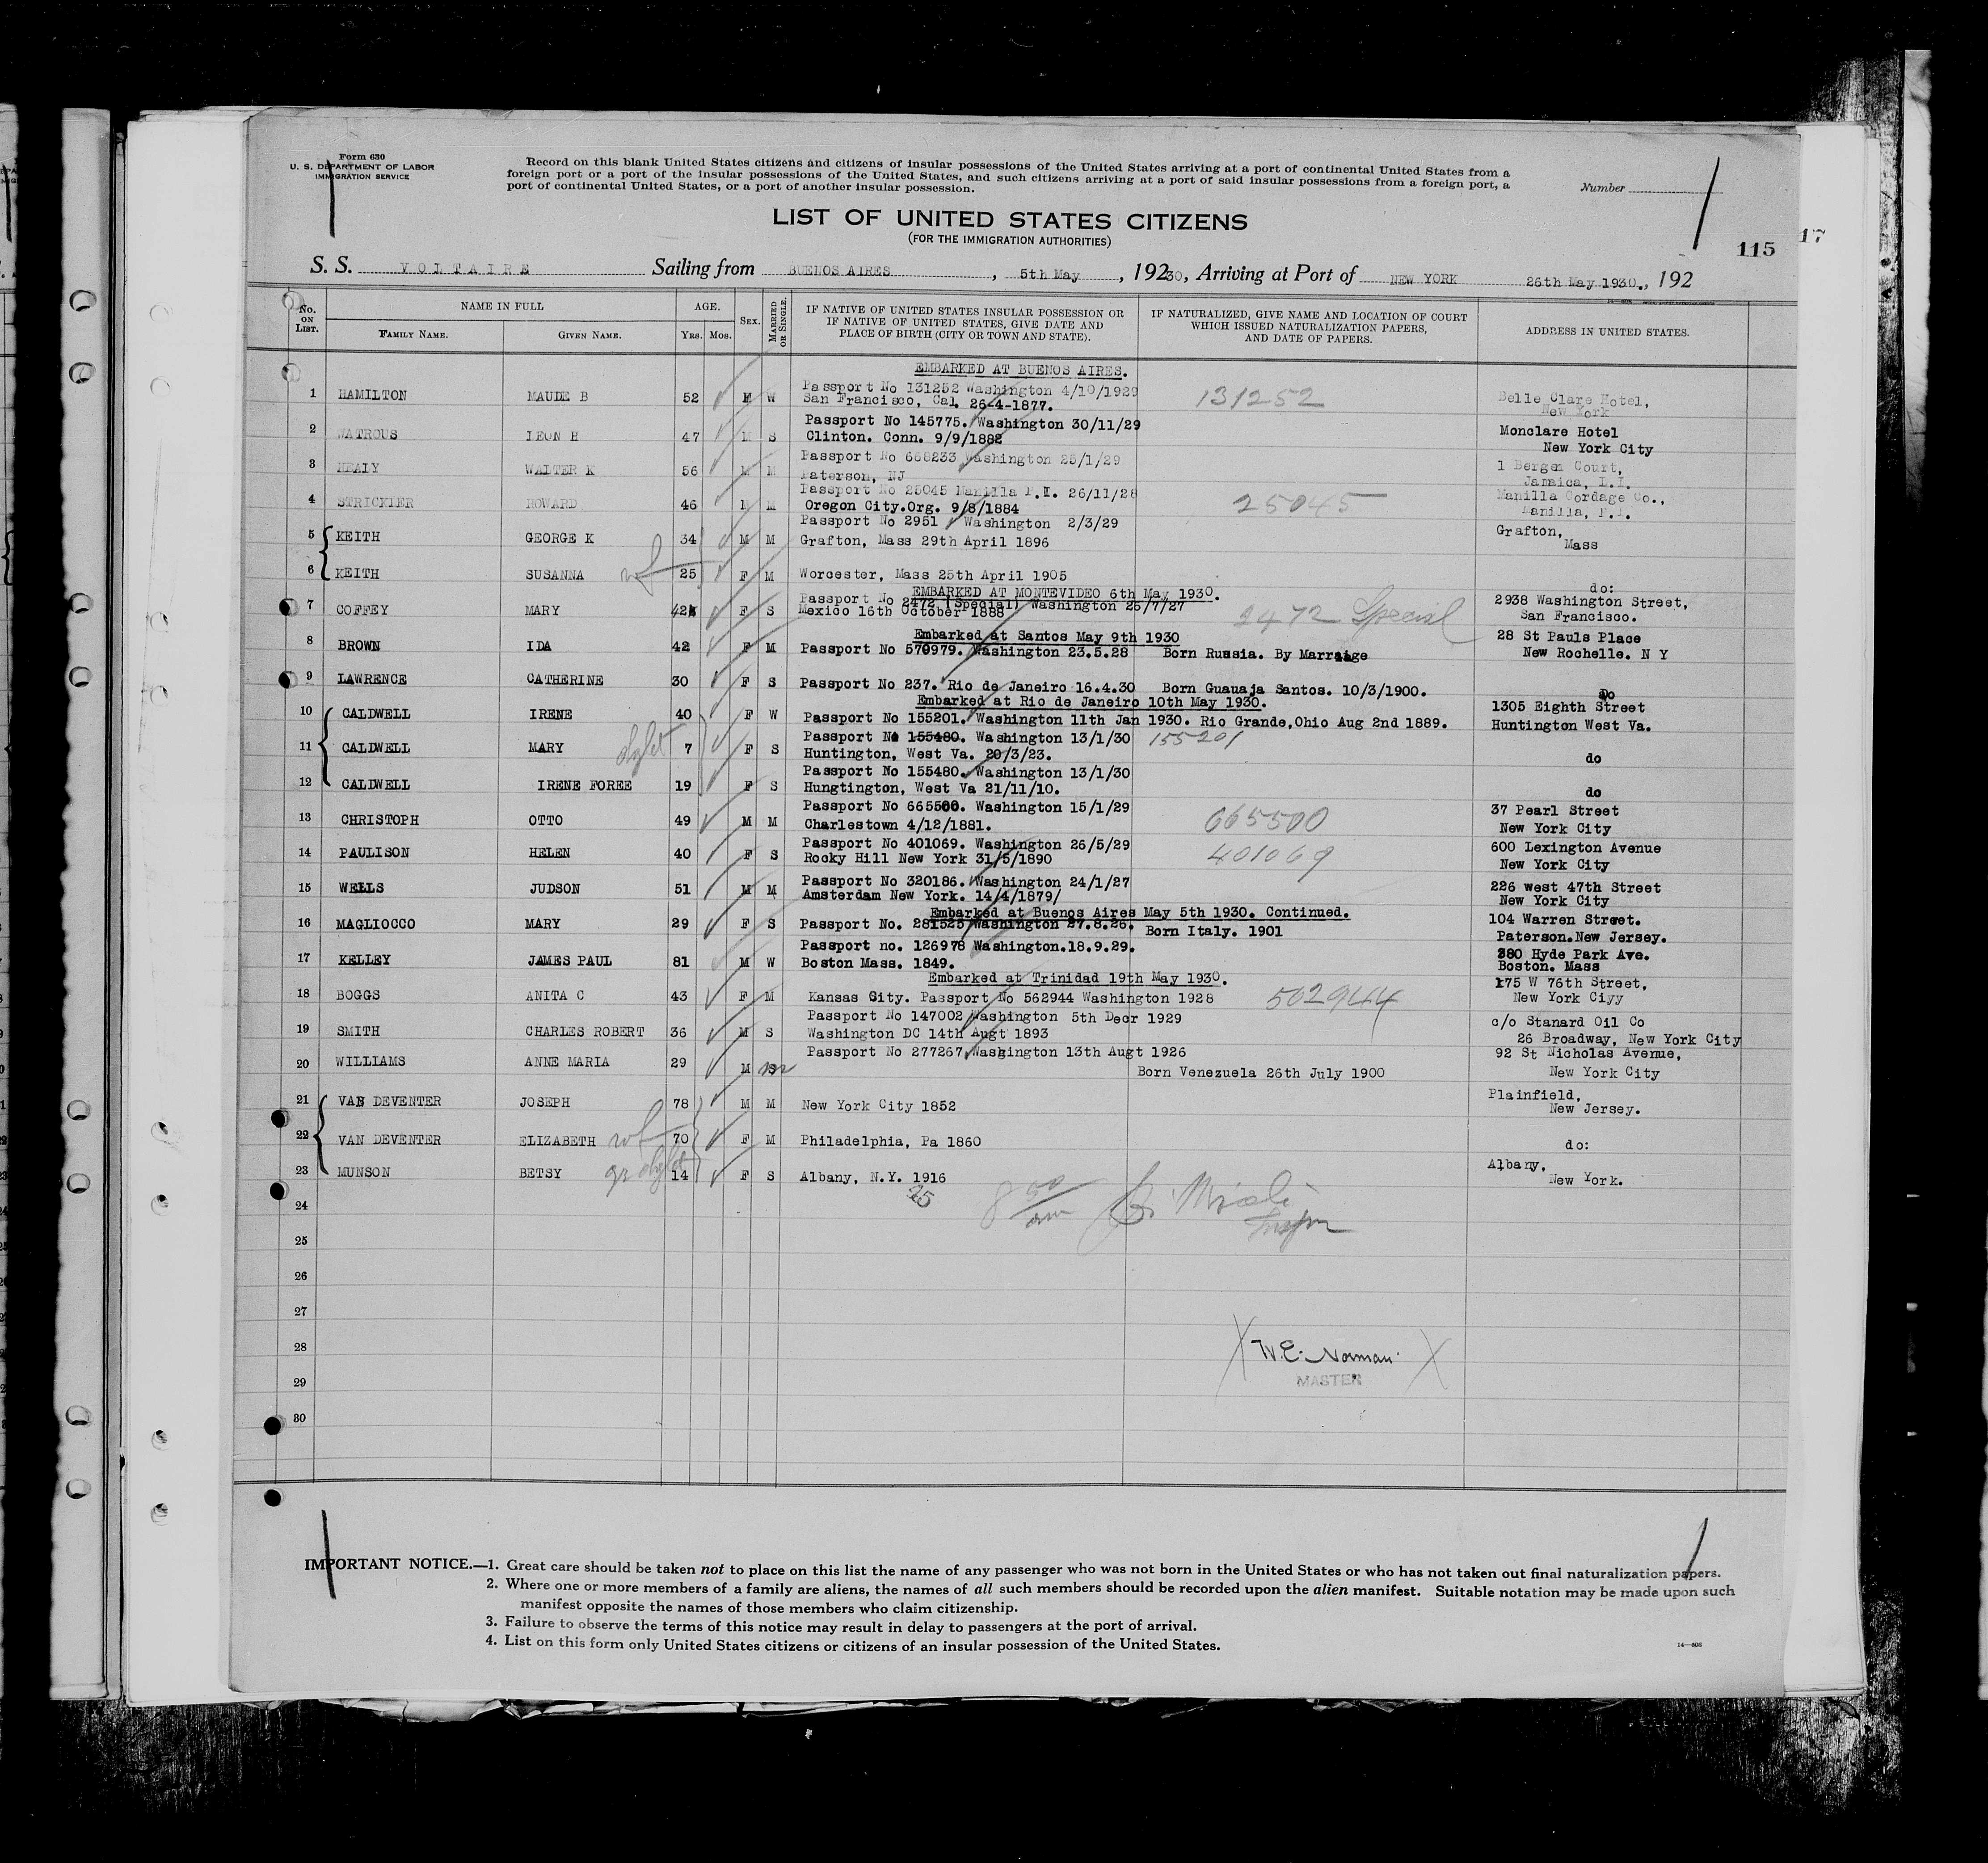 Form 630
U. S. DEPARTMENT OF LABOR
IMMIGRATION SERVICE
Record on this blank United States citizens and citizens of insular possessions of the United States arriving at a port of continental United States from a
foreign port or a port of the insular possessions of the United States, and such citizens arriving at a port of said insular possessions from a foreign port, a
port of continental United States, or a port of another insular possession.
Number
LIST OF UNITED STATES CITIZENS
(FOR THE IMMIGRATION AUTHORITIES)
115
17
S. S. VOLTAIRE Sailing from BUENOS AIRES, 5th May, 19230, Arriving at Port of NEW YORK 26th May 1930., 192
No. ON LIST. NAME IN FULL AGE. SEX. MARRIED OR SINGLE. IF NATIVE OF UNITED STATES INSULAR POSSESSION OR IF NATIVE OF UNITED STATES, GIVE DATE AND PLACE OF BIRTH (CITY OR TOWN AND STATE). IF NATURALIZED, GIVE NAME AND LOCATION OF COURT WHICH ISSUED NATURALIZATION PAPERS, AND DATE OF PAPERS. ADDRESS IN UNITED STATES.
FAMILY NAME. GIVEN NAME. YRS. MOS.
EMBARKED AT BUENOS AIRES.
Passport No 131252 Washington 4/10/1929
1 HAMILTON MAUDE B 52 M W San Francisco, Cal. 26-4-1877. 131252 Belle Clare Hotel,
New York
Passport No 145775. Washington 30/11/29
2 WATROUS LEON H 47 M S Clinton. Conn. 9/9/1882 Monclare Hotel
New York City
Passport No 668233 Washington 25/1/29
3 NEALY WALTER K 56 M M Paterson, NJ 1 Bergen Court,
Jamaica, L.I.
Passport No 25045 Manilla P.I. 26/11/28
4 STRICKLER HOWARD 46 M M Oregon City.Org. 9/8/1884 25045 Manilla Cordage Co.,
Manilla, P.I.
Passport No 2951 Washington 2/3/29
5 KEITH GEORGE K 34 M M Grafton, Mass 29th April 1896 Grafton,
Mass
6 KEITH SUSANNA wf 25 F M Worcester, Mass 25th April 1905 do:
EMBARKED AT MONTEVIDEO 6th May 1930.
Passport No 2472 (Special) Washington 25/7/27
7 COFFEY MARY 42 F S Mexico 16th October 1888 2472 Special 2938 Washington Street,
San Francisco.
Embarked at Santos May 9th 1930
8 BROWN IDA 42 F M Passport No 570979. Washington 23.5.28 Born Russia. By Marraige 28 St Pauls Place
New Rochelle. N Y
9 LAWRENCE CATHERINE 30 F S Passport No 237. Rio de Janeiro 16.4.30 Born Guauaja Santos. 10/3/1900. Do
Embarked at Rio de Janeiro 10th May 1930.
10 CALDWELL IRENE 40 F W Passport No 155201. Washington 11th Jan 1930. Rio Grande,Ohio Aug 2nd 1889. 1305 Eighth Street
Huntington West Va.
Passport No 155480. Washington 13/1/30 155201
11 CALDWELL MARY 7 F S Huntington, West Va. 20/3/23. do
Passport No 155480. Washington 13/1/30
12 CALDWELL IRENE FOREE 19 F S Hungtington, West Va 21/11/10. do
Passport No 665500. Washington 15/1/29
13 CHRISTOPH OTTO 49 M M Charlestown 4/12/1881. 665500 37 Pearl Street
New York City
Passport No 401069. Washington 26/5/29
14 PAULISON HELEN 40 F S Rocky Hill New York 31/5/1890 401069 600 Lexington Avenue
New York City
Passport No 320186. Washington 24/1/27
15 WELLS JUDSON 51 M M Amsterdam New York. 14/4/1879/ 226 west 47th Street
New York City
Embarked at Buenos Aires May 5th 1930. Continued.
16 MAGLIOCCO MARY 29 F S Passport No. 281525 Washington 27.8.26. Born Italy. 1901 104 Warren Street.
Paterson.New Jersey.
Passport no. 126978 Washington.18.9.29.
17 KELLEY JAMES PAUL 81 M W Boston Mass. 1849. 380 Hyde Park Ave.
Boston. Mass
Embarked at Trinidad 19th May 1930.
18 BOGGS ANITA C 43 F M Kansas City. Passport No 562944 Washington 1928 502944 175 W 76th Street,
New York Ciyy
Passport No 147002 Washington 5th Decr 1929
19 SMITH CHARLES ROBERT 36 M S Washington DC 14th Augt 1893 c/o Stanard Oil Co
26 Broadway, New York City
Passport No 277267 Washington 13th Augt 1926
20 WILLIAMS ANNE MARIA 29 M S Born Venezuela 26th July 1900 92 St Nicholas Avenue,
New York City
21 VAN DEVENTER JOSEPH 78 M M New York City 1852 Plainfield,
New Jersey.
22 VAN DEVENTER ELIZABETH wf 70 F M Philadelphia, Pa 1860 do:
23 MUNSON BETSY 14 F S Albany, N.Y. 1916 Albany,
New York.
24
25
26
27
28
29
30
W.E. Norman
MASTER
IMPORTANT NOTICE.—1. Great care should be taken not to place on this list the name of any passenger who was not born in the United States or who has not taken out final naturalization papers.
2. Where one or more members of a family are aliens, the names of all such members should be recorded upon the alien manifest. Suitable notation may be made upon such
manifest opposite the names of those members who claim citizenship.
3. Failure to observe the terms of this notice may result in delay to passengers at the port of arrival.
4. List on this form only United States citizens or citizens of an insular possession of the United States.